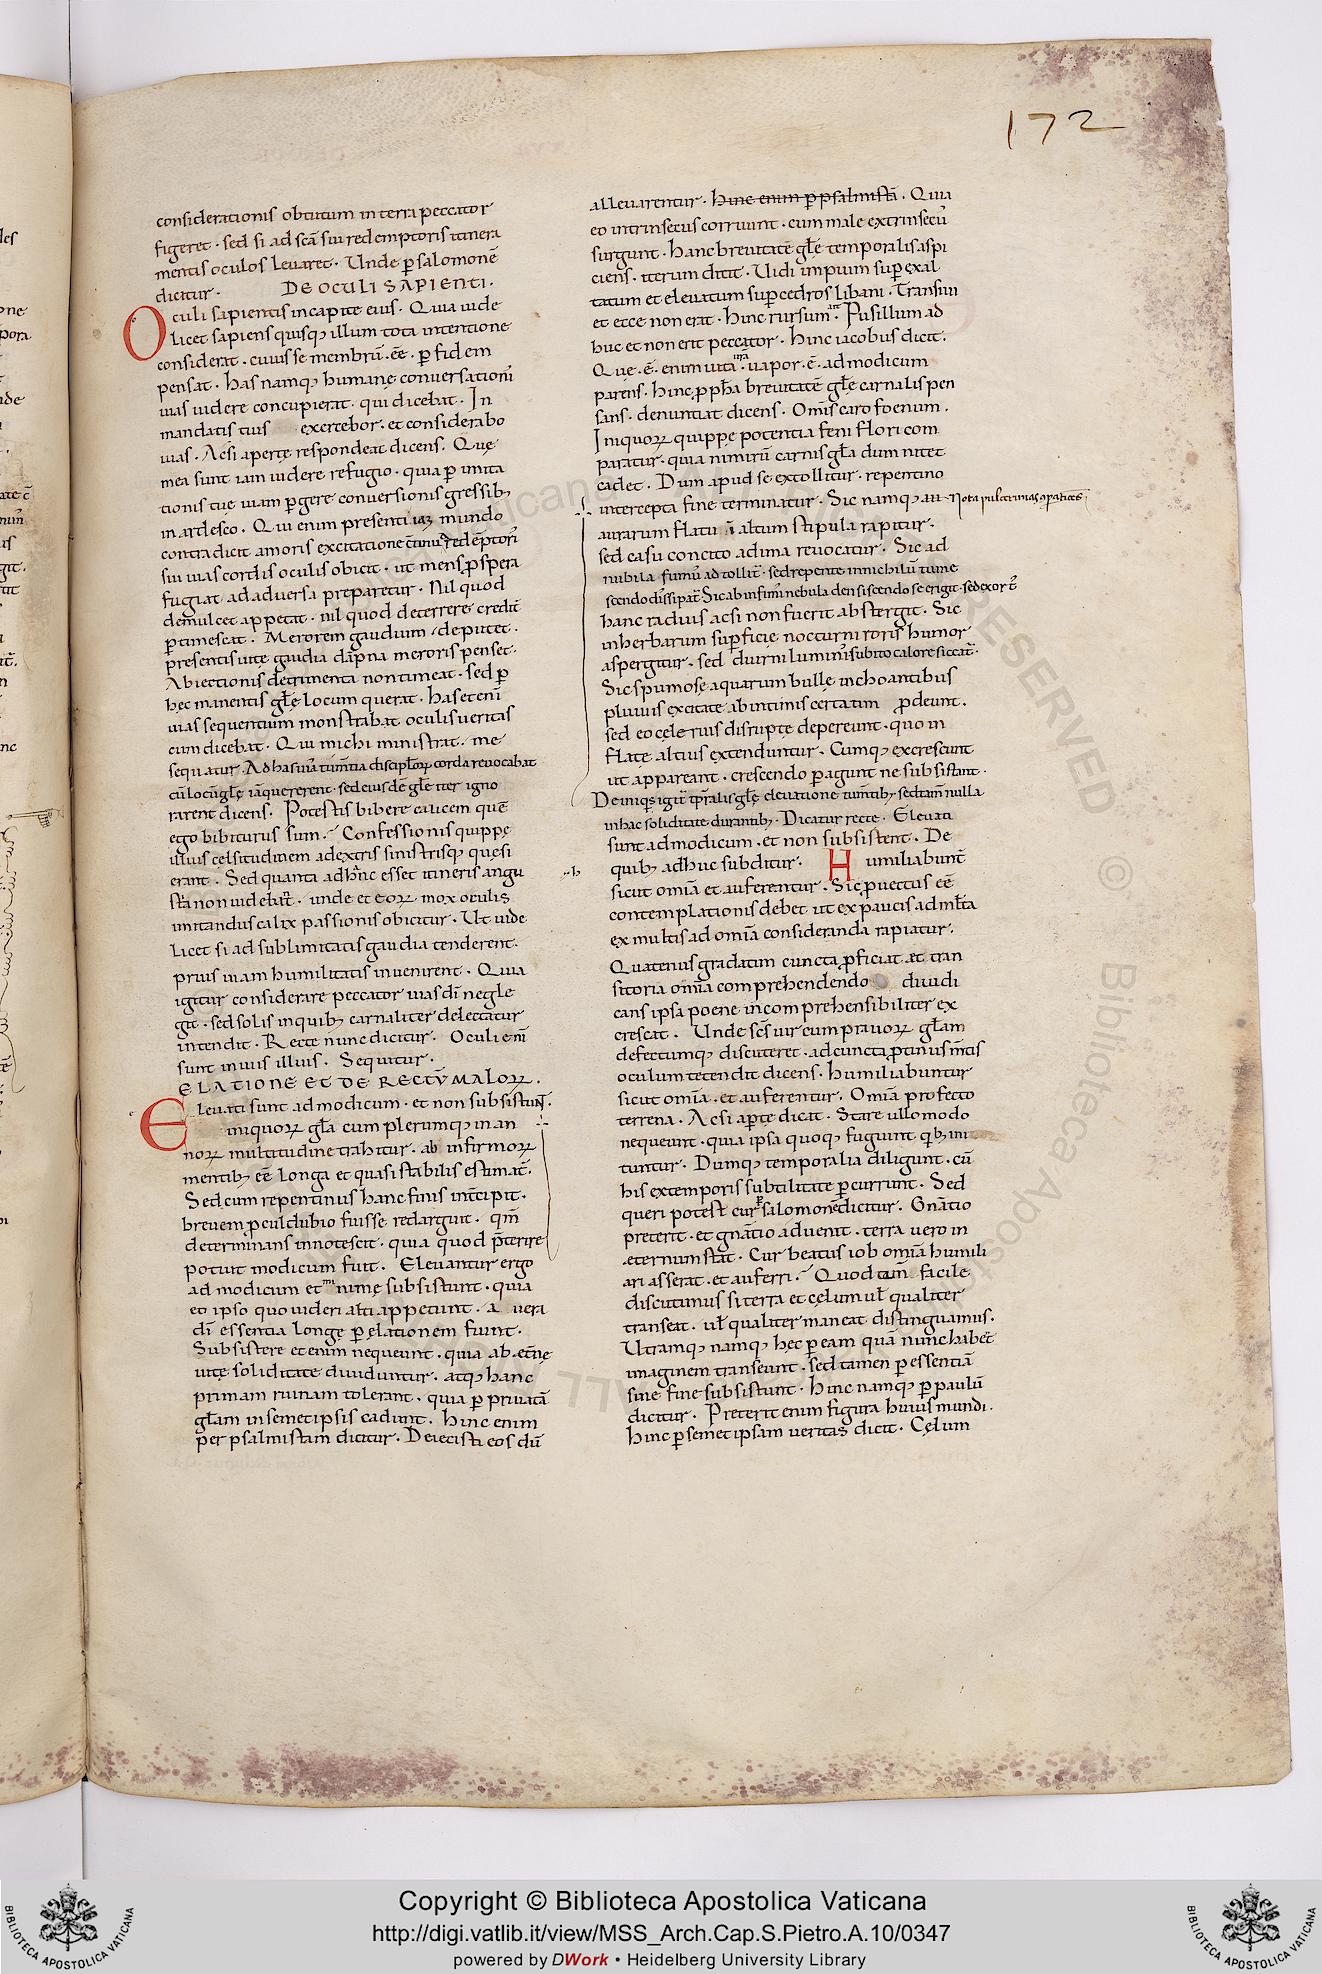 172
considerationis obtutum in terra peccator
figeret · sed si ad scā sui redemptoris itinera
mentis oculos levaret · Unde p salomonē
dicitur · DE OCULI SAPIENTI ·
Oculi sapientis in capite eius · Quia vide
licet sapiens quisq; illum tota intentione
considerat · cuius se membrū · ēē · p fidem
pensat · has namq; humanę conversationis
vias videre concupierat · qui dicebat · In
mandatis tuis exercebor · et considerabo
vias · Acsi apertę respondeat dicens · Quę
mea sunt iam videre refugio · quia p imita
tionis tuę viam p gere conversionis gressib;
inardesco · Qui enim presenti iā mundo
contradicit amoris excitatione redēptoris
sui vias cordis oculis obicit · ut mens pspera
fugiat ad adversa preparetur · Nil quod
demulcet appetat · nil quod deterrere credit
ptimescat · Merorem gaudium deputet ·
presentis vitę gaudia dāpna meroris penset ·
Abiectionis detrimenta non timeat · sed p
hęc manentis głę locum querat · Has etenī
vias sequentium monstrabat oculis veritas
cum dicebat · Qui michi ministrat · me
sequatur · Ad has viā tumentia discipłorꝝ corda revocabat
cū locū głę iā quererent · sed eiusdē głę iter igno
rarent dicens · Potestis bibere calicem quē
ego bibiturus sum · Confessionis quippę
illius celsitudinem a dextris sinistrisq; quesi
erant · Sed quanta adhuc esset itineris angu
stia non videbāt · unde et eorꝝ mox oculis
imitandus calix passionis obicitur · Ut vide
licet si ad sublimitatis gaudia tenderent ·
prius viam humilitatis invenirent · Quia
igitur considerare peccator vias dī negle
git · sed solis in quib; carnaliter delectatur
intendit · Recte nunc dicitur · Oculi enī
sunt in viis illius · Sequitur ·
ELATIONE ET DE RECTŪ MALORꝜ ·
Elevati sunt ad modicum · et non subsistunt ·
iniquorꝝ głā cum plerumq; in an
norꝝ multitudine trahitur · ab infirmorꝝ
mentib; ēē longa et quasi stabilis estimat̄ ·
Sed cum repentinus hanc finis int̄cipit ·
brevem pcul dubio fuisse redarguit · qm̄
determinans innotescit · quia quod p̄terire
potuit modicum fuit · Elevantur ergo
ad modicum et minimę subsistunt · quia
eo ipso quo videri alti appetunt · a veri
dī essentia longę p elationem fiunt ·
Subsistere etenim nequeunt · quia ab ęt̄nę
vitę soliditate dividuntur · atq; hanc
primam ruinam tolerant · quia p privatā
głām in semetipsis cadunt · hinc enim
per psalmistam dicitur · Deiecisti eos dū
allevarentur · hinc enim p psalmistā · Quia
eo intrinsecus corruunt · cum male extrinsecus
surgunt · hanc brevitatē głę temporalis aspi
ciens · iterum dicit · Vidi impium sup exal
tatum et elevatum sup cedros libani · Transivi
et ecce non erat · hinc rursum ait · Pusillum ad
huc et non erit peccator · hinc iacobus dicit ·
Quę · ē · enim vita vrā · vapor · ē · ad modicum
parens · hinc p ppha brevitatē głę carnalis pen
sans · denuntiat dicens · Omnis caro foenum ·
Iniquorꝝ quippę potentia feni flori com
paratur · quia nimirū carnis głā dum nitet
cadet · Dum apud se extollitur · repentino
intercepta fine terminatur · Sic namq; au
aurarum flatu in altum stipula rapitur ·
sed casu concito ad ima revocatur · Sic ad
nubila fumus attollit̄ · sed repente in nichilū tume
scendo dissipat̄ · Sic ab infimis nebula densiscendo se erigit · sed exort̄
hanc radius acsi non fuerit abstergit · Sic
in herbarum supficię nocturni roris humor
aspergitur · sed diurni luminis subito calore siccat̄ ·
Sic spumosę aquarum bullę inchoantibus
pluviis excitatę ab intimis certatim pdeunt ·
sed eo celerius disruptę depereunt · quo in
flatę altius extenduntur · Cumq; excrescunt
ut appareant · crescendo pagunt ne subsistant ·
De iniquis igit̄ tp̄ralis głę elevatione tum̄tib; sed tam̄ nulla
in hac soliditate durantib; · Dicatur recte · Elevati
sunt ad modicum · et non subsistent · De
quib; adhuc subditur · Humiliabunt̄
sicut omīa et auferentur · Sic provectus ēē
contemplationis debet ut ex paucis ad młta
ex multis ad omīa consideranda rapiatur ·
Quatenus gradatim cuncta pficiat · et tran
sitoria omīa comprehendendo diiudi
cans ipsa poene incomprehensibiliter ex
crescat · Unde scs vir cum pravorꝝ głam
defectumq; discuteret · ad cuncta ptinus mtis
oculum tetendit dicens · humiliabuntur
sicut omīa · et auferentur · Omīa profecto
terrena · Acsi apte dicat · Stare ullo modo
nequeunt · quia ipsa quoq; fugiunt qb; ini
tuntur · Dumq; temporalia diligunt · cū
his ex temporis subtilitate pcurrunt · Sed
queri potest cur p salomonē dicitur · Gnātio
preterit · et gnātio advenit · terra vero in
æternum stat · Cur beatus iob omīa humili
ari asserat · et auferri · Quod tam̄ facile
discutimus si terra et cęlum uł qualiter
transeat · uł qualiter maneat distinguamus ·
Utramq; namq; hęc p eam quā nunc habet
imaginem transeunt · sed tamen p essentiā
sine fine subsistunt · hinc namq; p paulū
dicitur · Preterit enim figura huius mundi ·
hinc p semetipsam veritas dicit · Cęlum
Copyright © Biblioteca Apostolica Vaticana
http://digi.vatlib.it/view/MSS_Arch.Cap.S.Pietro.A.10/0347
powered by DWork • Heidelberg University Library